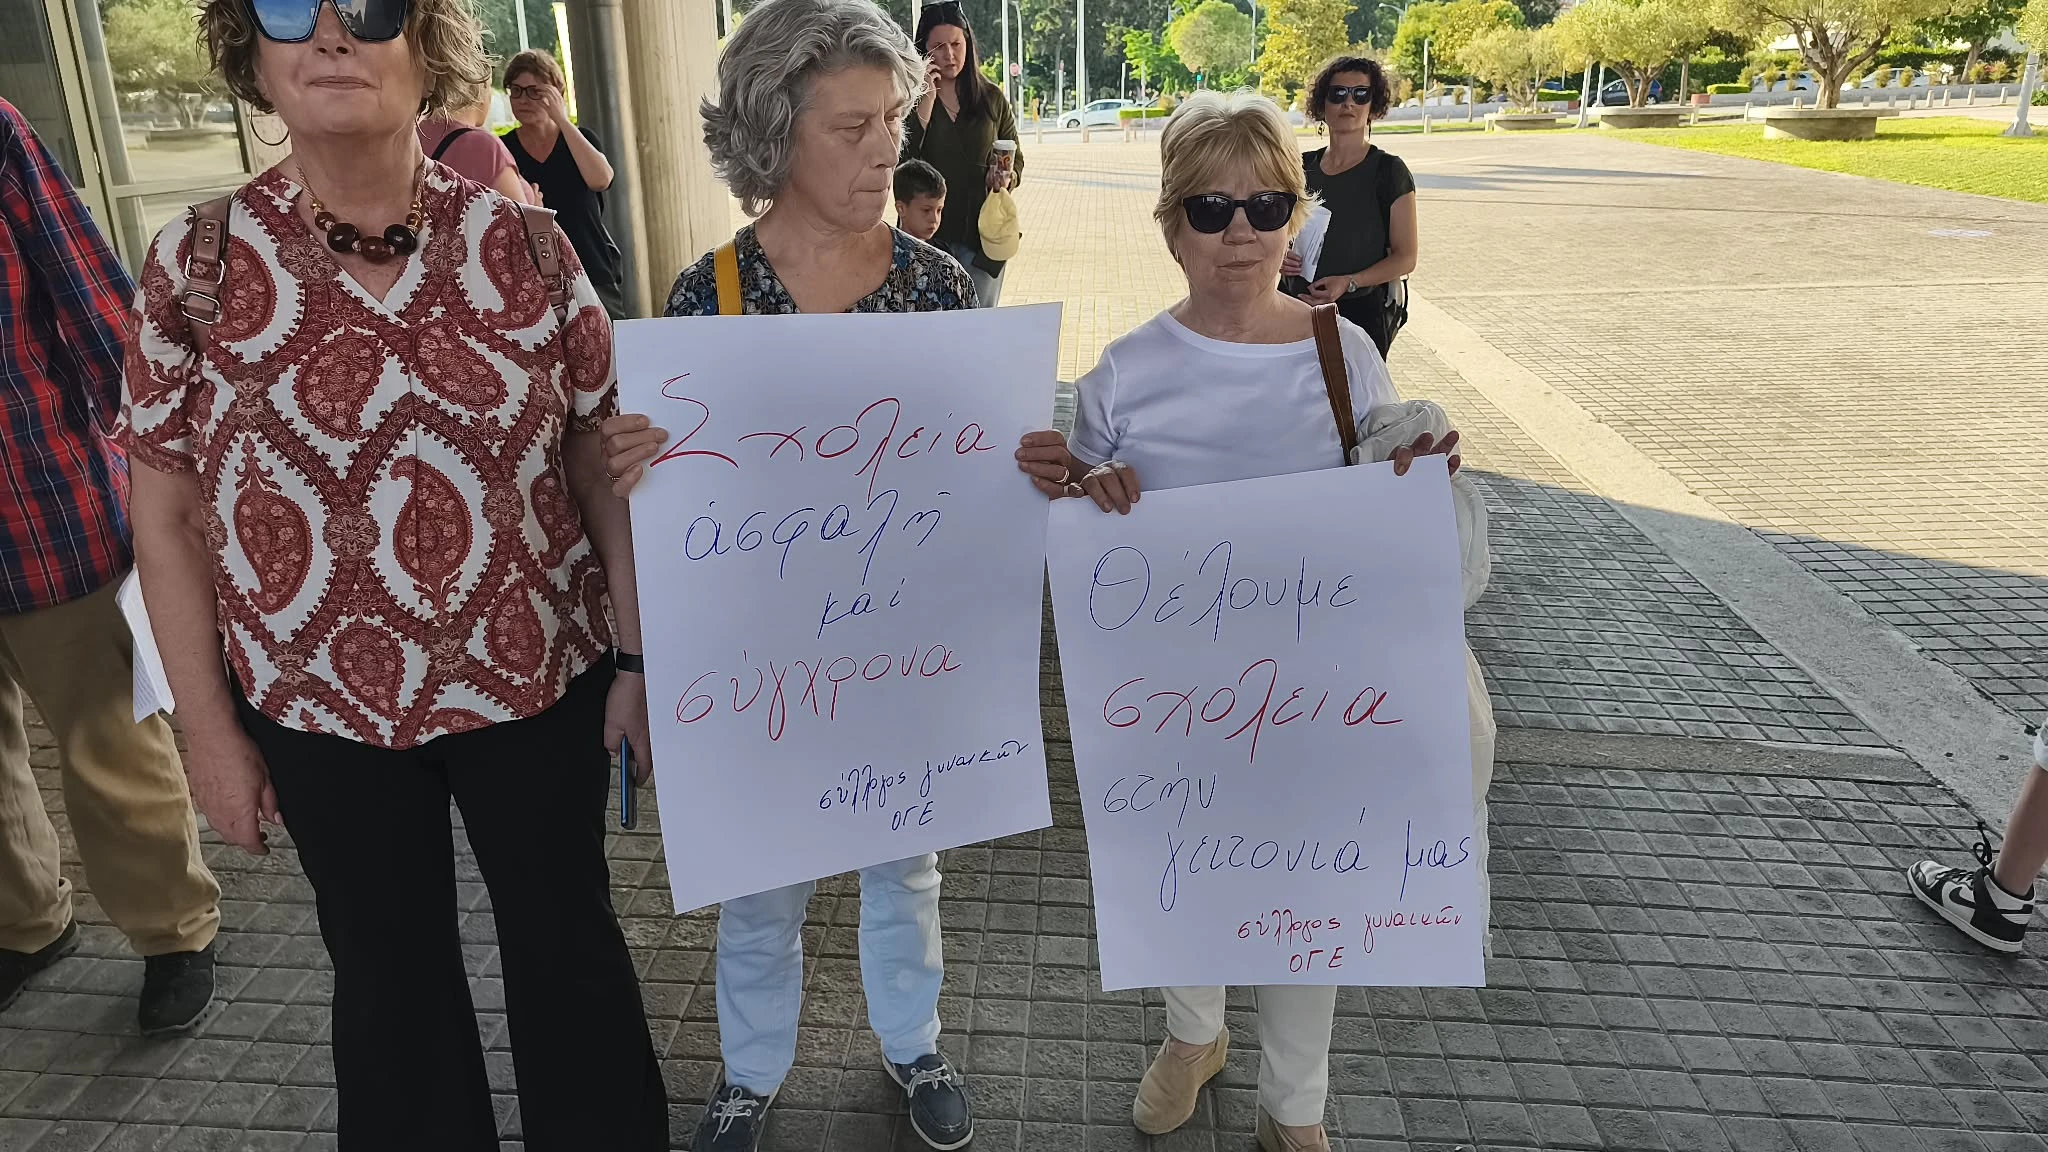 Σχολεία
ἀσφαλῆ
καί
σύγχρονα
σύλλογος γυναικῶν
ΟΓΕ
Θέλουμε
σχολεία
στήν
γειτονιά μας
σύλλογος γυναικῶν
ΟΓΕ